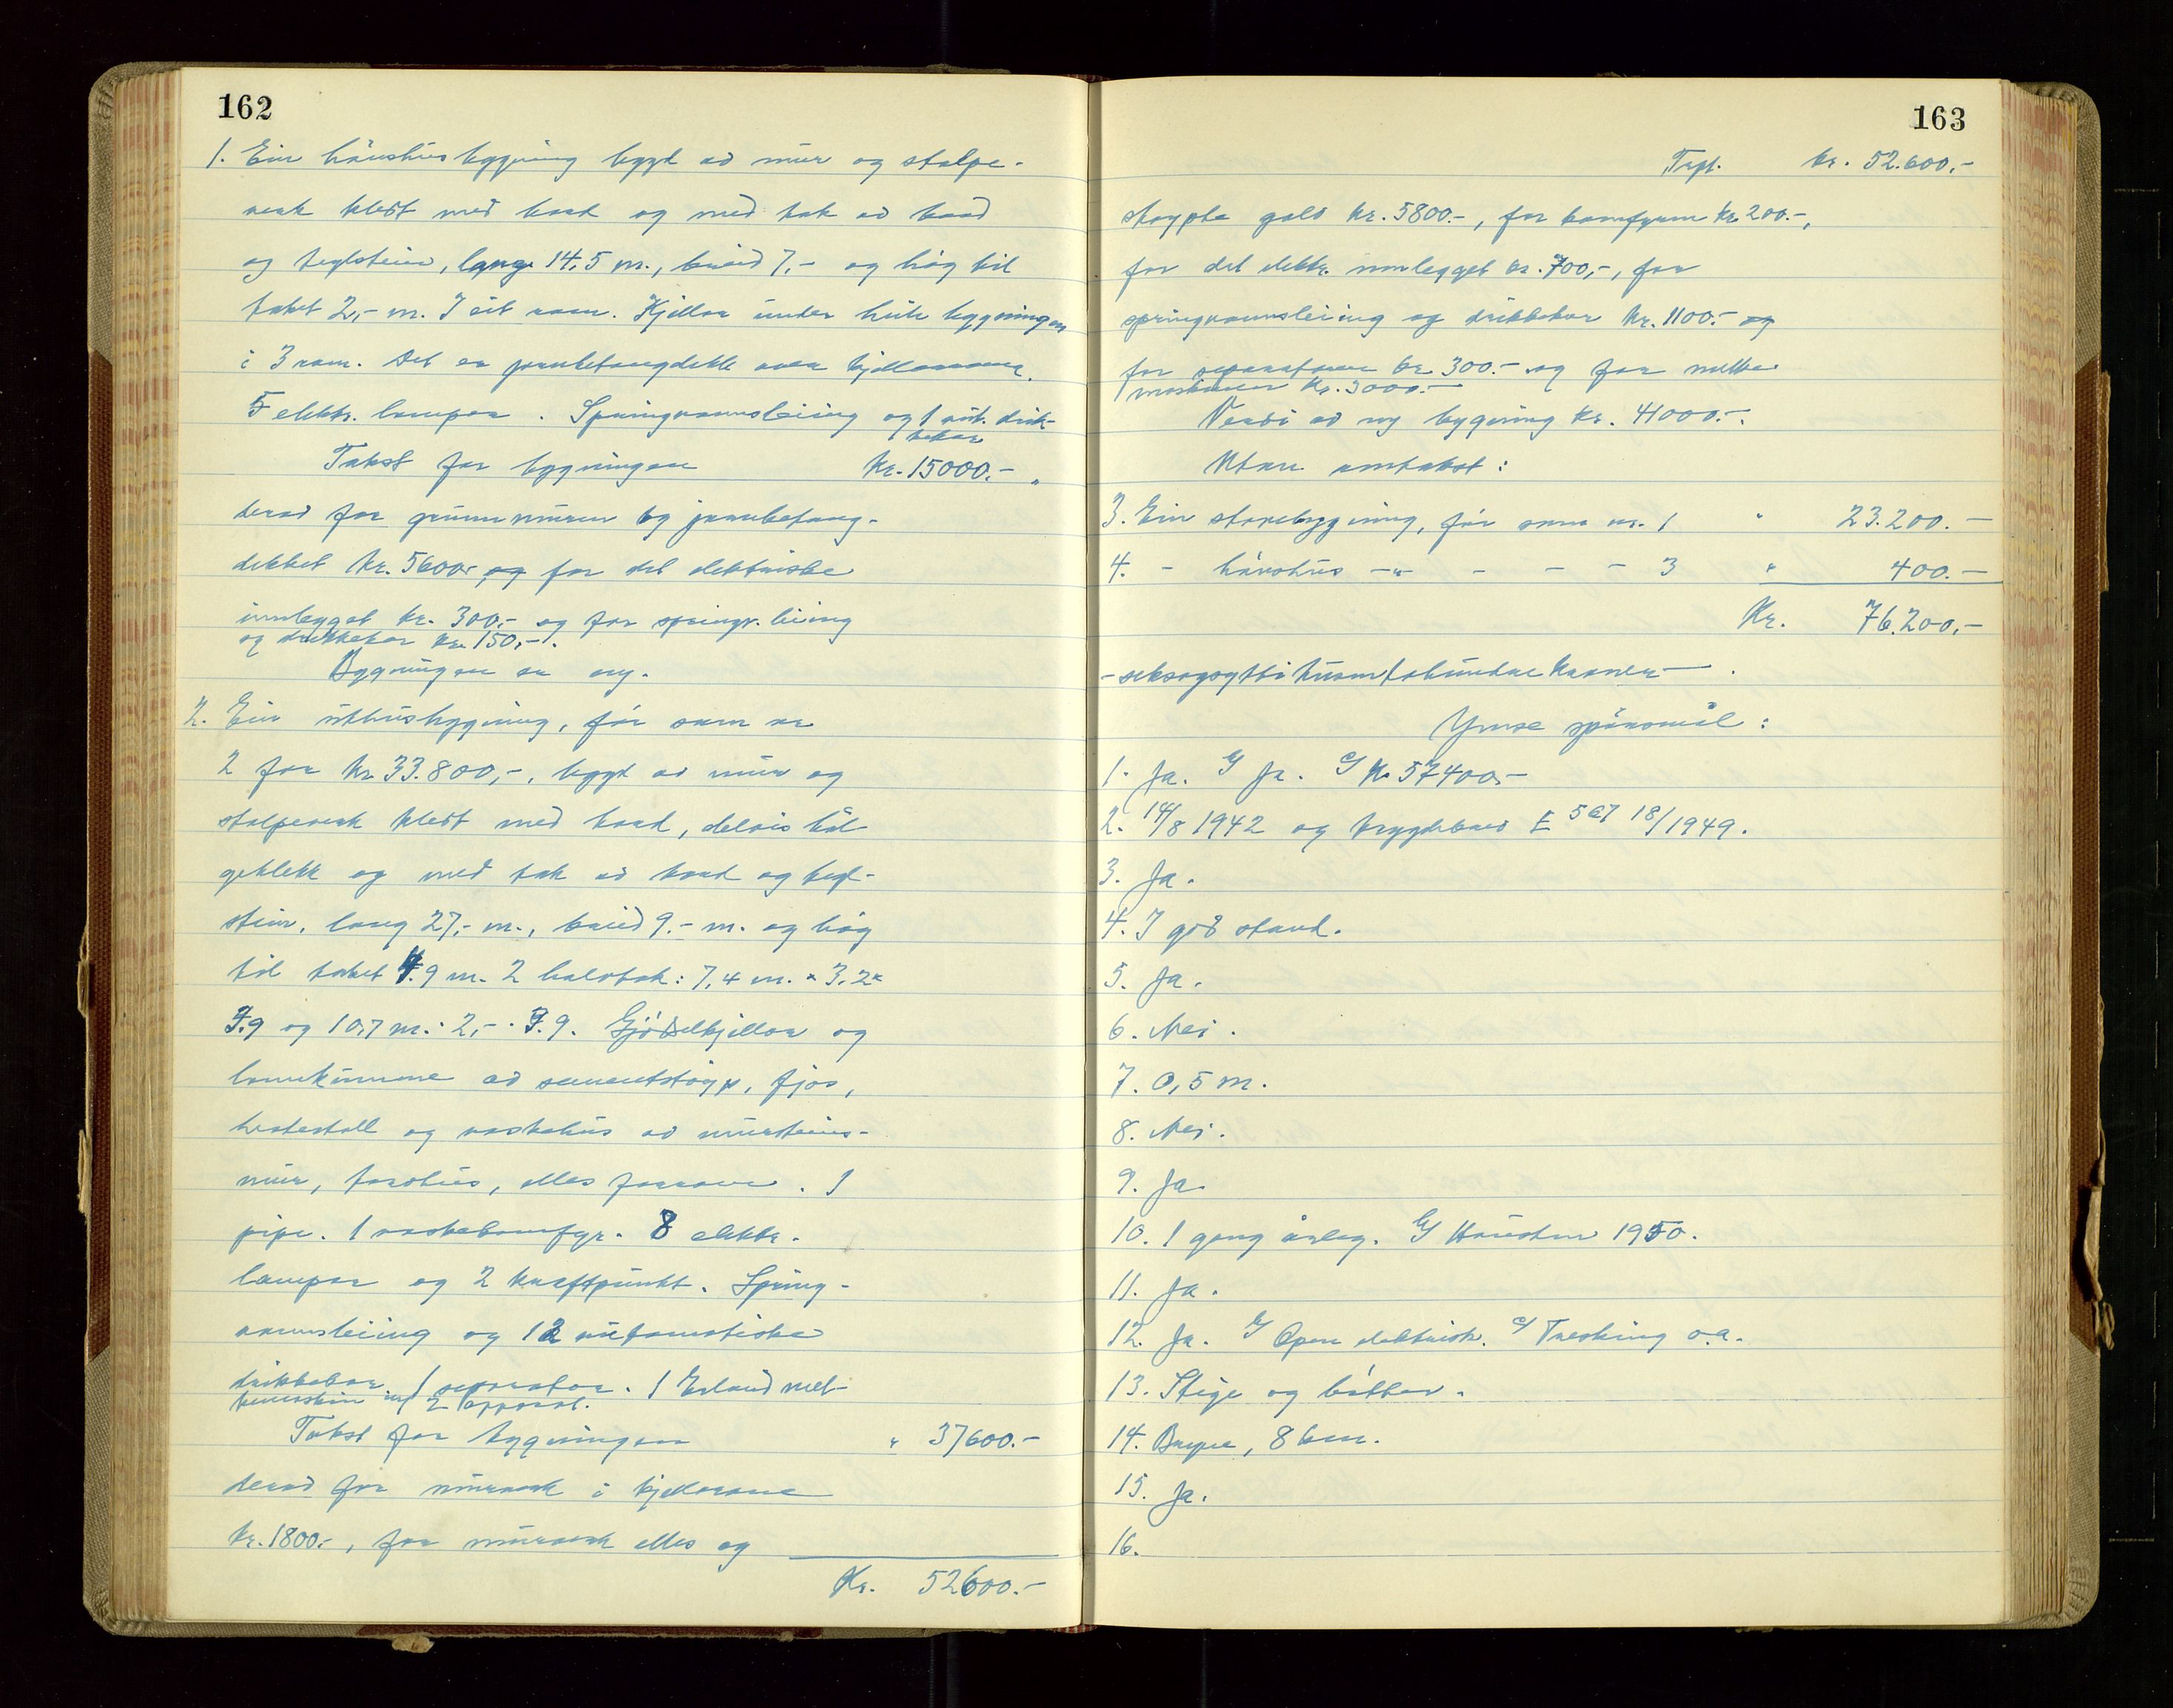 162
1. Ein hönsehusbygning bygt av mur og stolpe-
verk kledt med bord og med tak av bord
og teglstein, lang 14,5 m., breid 7,- og høg til
taket 2,- m. I eit rom. Kjellar under heile bygningen
i 3 rom. Det er jernbetongdekke over kjellarane.
5 elektr. lampor. Springvannsleiing og 1 aut. drik-
kekar
Takst for bygningen Kr. 15000.-
derav for grunnmuren og jernbetong-
dekket kr. 5600,- og for det elektriske
innlegget kr. 300,- og for springv. leiing
og drikkekar kr. 150,-.
Bygningen er ny.
2. Ein uthusbygning, før som nr
2 for kr 33.800,-, bygt av mur og
stolpeverk kledt med bord, delvis böl
geblekk og med tak av bord og tegl-
stein, lang 27,- m., breid 9.- m. og høg
til taket 4.9 m. 2 halvtak: 7,4 m. × 3,2 ×
3.9 og 10,7 m. · 2,- · 3.9. Gjødselkjellar og
landkumme av sementstøyp, fjos,
hestestall og vaskehus av murstein-
mur, torvhus, elles forrom. 1
pipe. 1 vaskekomfyr. 8 elektr.
lampor og 2 kraftpunkt. Spring-
vannsleiing og 12 automatiske
drikkekar, 1 separator. 1 Erland mel-
kemaskin m/ 2 apparat.
Takst for bygningen " 37600.-
derav for murverk i kjellarane
kr. 1800.-, for murverk elles og
Kr. 52600.-
163
Trpt. kr. 52.600,-
støypte golv kr. 5800.-, for komfyren kr 200.-,
for det elektr. innlegget kr. 700,-, for
springvannsleiing og drikkekar kr. 1100.- og
for separatoren kr. 300.- og for melke
maskinen kr. 3000.-
Verdi av ny bygning kr. 41000.-.
Utan omtakst:
3. Ein stovebygning, før som nr. 1 " 23.200.-
4. - hönsehus -"- - - - 3 " 400.-
Kr. 76.200,-
- seksogsytti tusentohundre kroner - .
Ymse spörsmål:
1. Ja. G Ja. G Kr 57400,-
2. 14/8 1942 og brygdebrev E 567 18/1949.
3. Ja.
4. I god stand.
5. Ja.
6. Nei.
7. 0,5 m.
8. Nei.
9. Ja
10. 1 gang årleg. G Hausten 1950.
11. Ja.
12. Ja. G Open elektrisk. G Tresking o.a.
13. Stige og bøtter.
14. Bryne, 8 km.
15. Ja.
16.